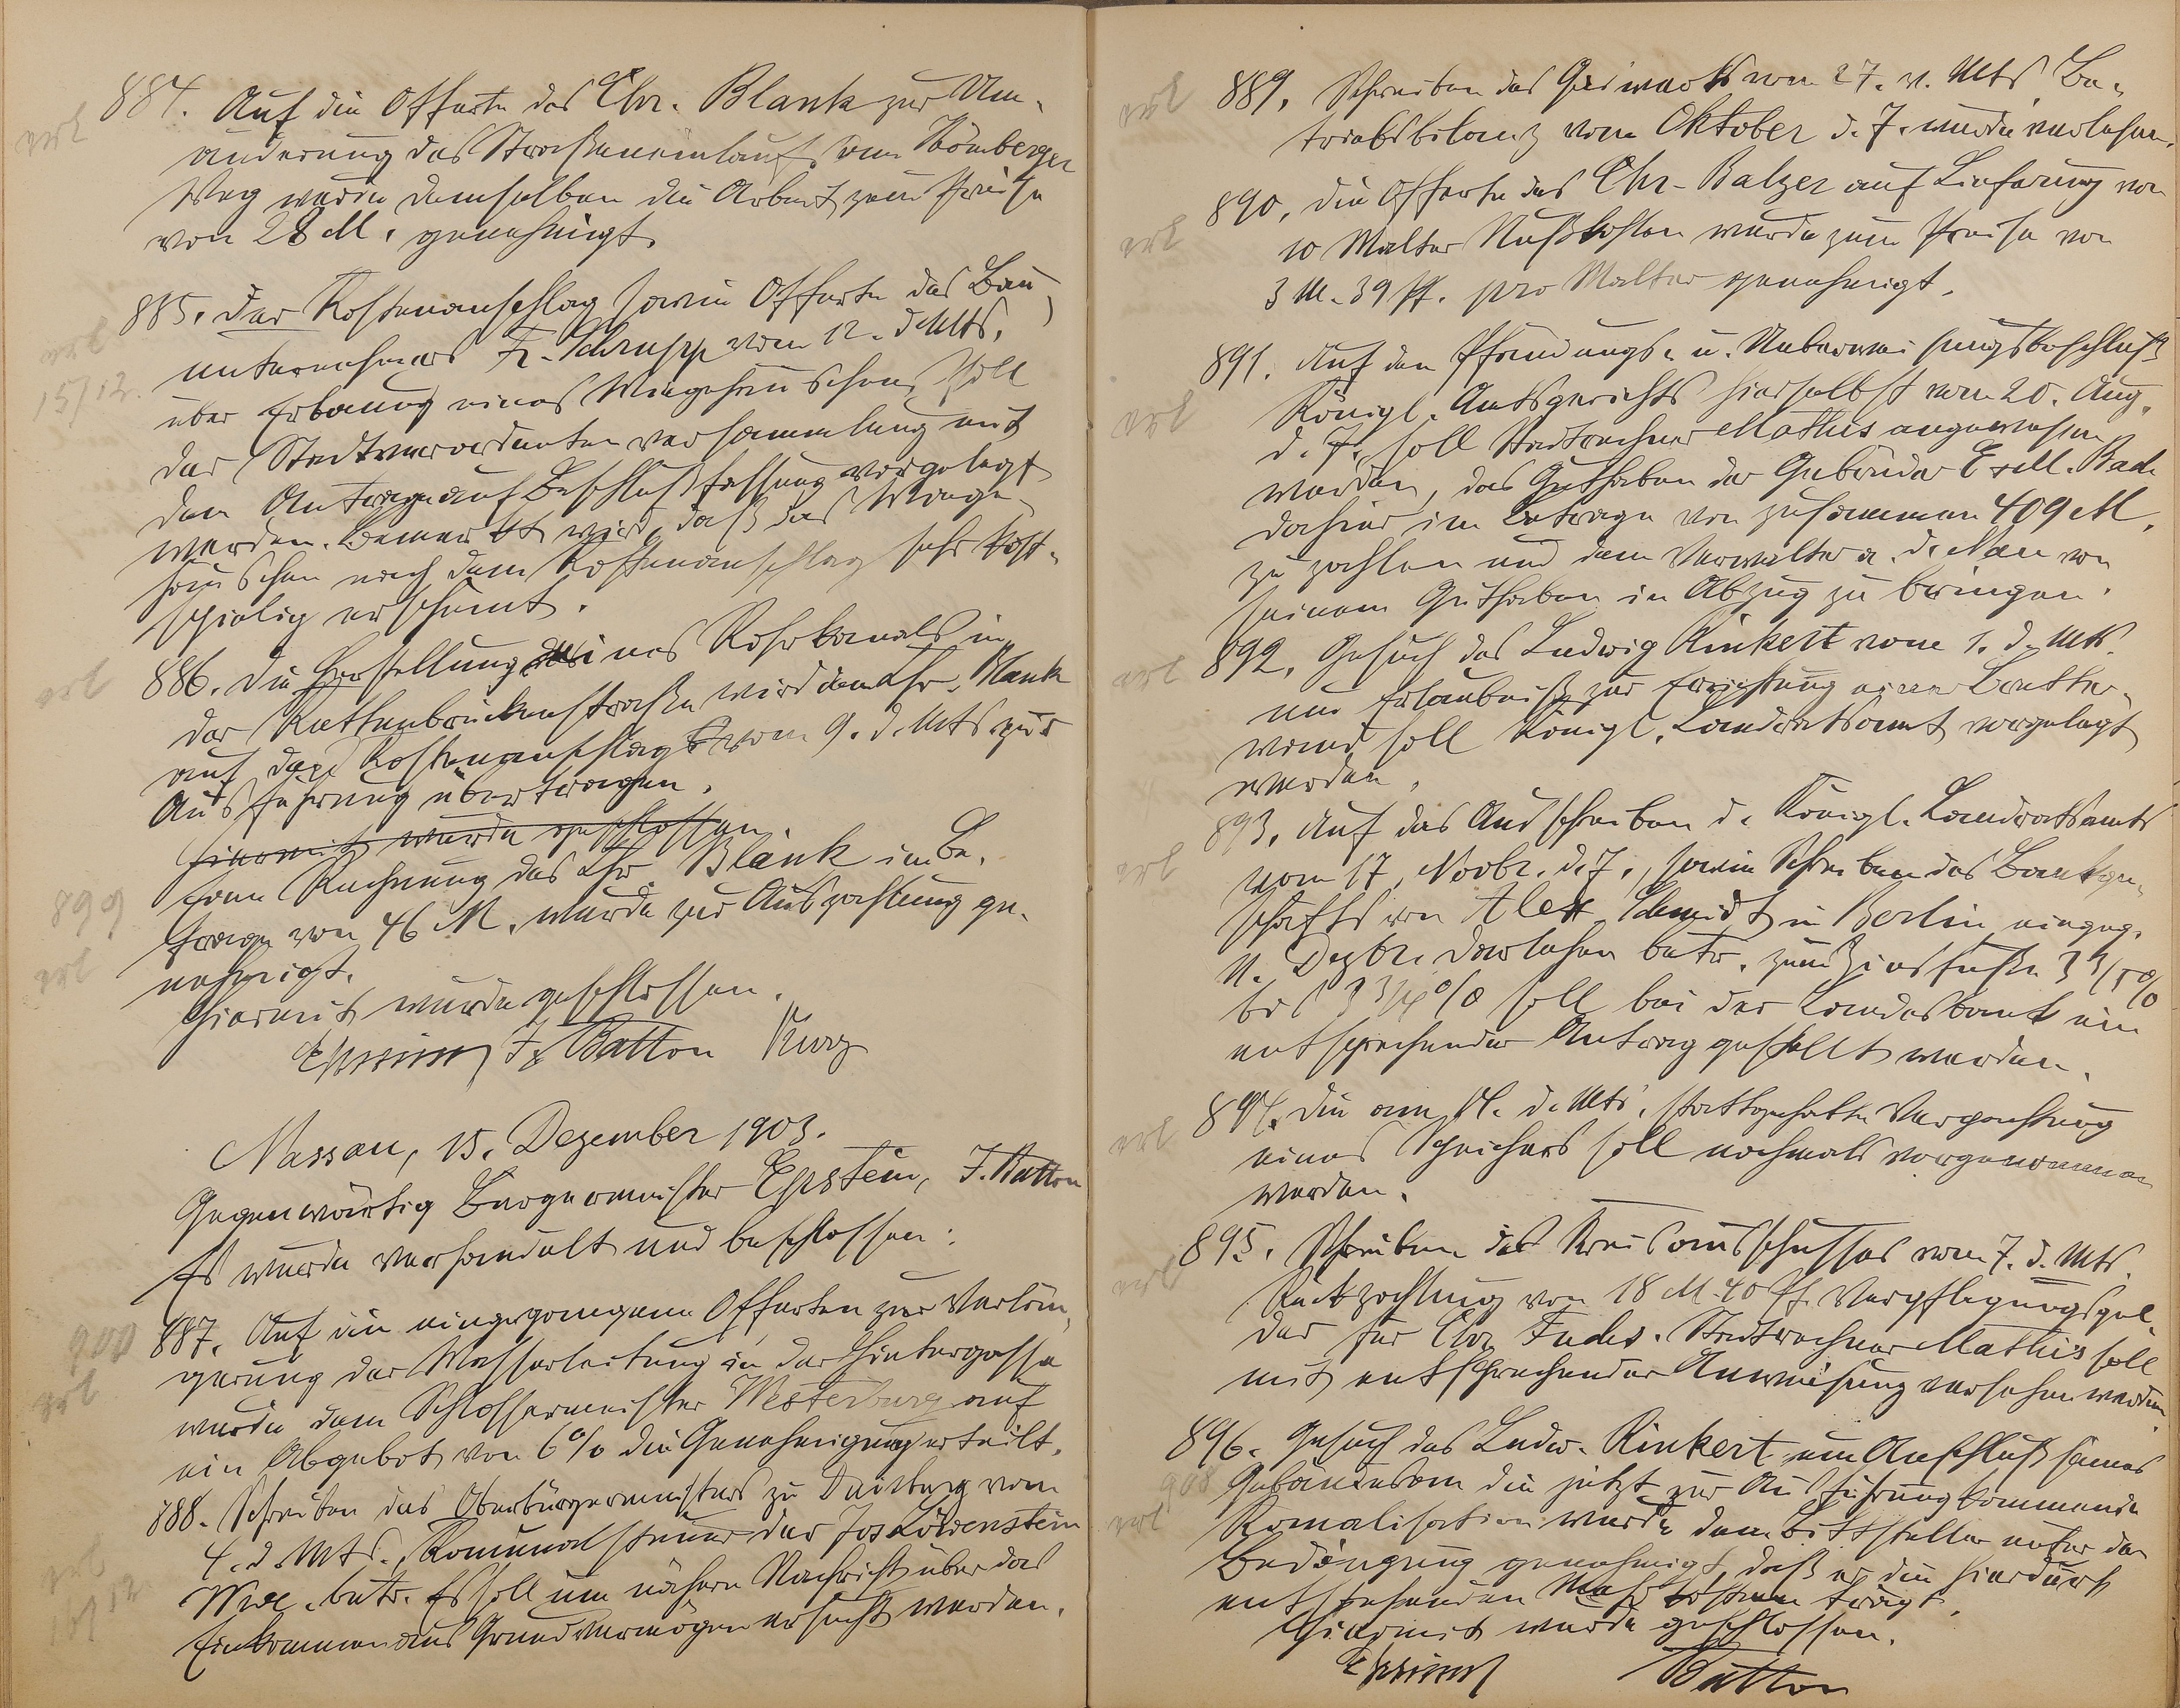 884. Auf die Offerte des Chr. Blank zur Um-
änderung des Straßeneinlaufs vom Kömberger
Weg wurde demselben die Arbeit zum Preise
von 28 M. genehmigt.
885. Der Kostenanschlag sowie Offerte des Bau-
unternehmers Fr. Schrupp vom 12. d. Mts.
über Erbauung eines Wiegehäuschens soll
der Stadtverordnetenversammlung mit
dem Antrage auf Beschlußfassung vorgelegt
werden. Bemerkt wird, daß das Wiege-
häuschen nach dem Kostenanschlag sehr kost-
spielig erscheint.
886. Die Herstellung eines Rohrkanals in
der Kettenbrückenstraße wird dem Chr. Blank
auf den Kostenanschlag vom 9. d. Mts. zur
Ausführung übertragen.
Hiermit wurde geschlossen.
899 Eine Rechnung des Chr. Blank im Be-
trage von 46 M. wurde zur Auszahlung ge-
nehmigt.
Hiermit wurde geschlossen.
Epstein J. Batton Kurz
Nassau, 15. Dezember 1903.
Gegenwärtig Bürgermeister Epstein, J. Batton
Es wurde verhandelt und beschlossen:
887. Auf die eingegangenen Offerten zur Verlän-
gerung der Wasserleitung in der Hintergasse
wurde dem Schlossermeister Westerburg auf
ein Abgebot von 6% die Genehmigung erteilt.
888. Schreiben des Oberbürgermeisters zu Duisburg vom
4. d. Mts. Komunalsteuer der Jos. Löwenstein
Wwe. betr. Es soll um nähere Nachricht über das
Einkommen aus Grundvermögen ersucht werden.
erl
erl
15/12.
erl
erl
900
erl
889. Schreiben des Gaswerks vom 27. v. Mts. Be-
triebsbilanz vom Oktober d. J. wurde verlesen.
890. Die Offerte des Chr. Balzer auf Lieferung von
10 Malter Nußkohlen wurde zum Preise von
3 M. 39 Pf. pro Malter genehmigt.
891. Auf den Pfändungs- u. Ueberweisungsbeschluß
Königl. Amtsgerichts hierselbst vom 20. Aug.
d. J. soll Stadtrechner Mathis angewiesen
werden, das Guthaben der Gebrüder E. u. M. Bach
dahier im Betrage von zusammen 409 M.
zu zahlen und dem Verwalter a. d. Nau von
seinem Guthaben in Abzug zu bringen.
892. Gesuch des Ludwig Rinkert vom 1. d. Mts.
um Erlaubniß zur Errichtung einer Bretter-
wand soll Königl. Landratsamt vorgelegt
werden.
893. Auf das Ausschreiben d. Königl. Landratsamts
vom 17. Novbr. d. J., sowie Schreiben des Bankge-
schäfts von Alex Schmidt in Berlin eingeg.
11. Dezbr. Darlehen betr. zum Zinsfuße 3 4/5%
bis 3 3/4% soll bei der Landesbank ein
entsprechender Antrag gestellt werden.
894. Die am 14. d. Mts. stattgehabte Verpachtung
eines Speichers soll nochmals vorgenommen
werden.
895. Schreiben des Kreisausschusses vom 7. d. Mts.
Rückzahlung von 18 M. 40 Pf. Verpflegungsgel-
der für Chr. Fuchs. Stadtrechner Mathis soll
mit entsprechender Anweisung versehen werden.
896. Gesuch des Ludw. Rinkert um Anschluß seines
Gebäudes an die jetzt zur Ausführung kommende
Kanalisation wurde dem Bittsteller unter der
Bedingung genehmigt, daß er die hierdurch
entstehenden Mehrkosten trägt.
Hiermit wurde geschlossen.
Epstein Batton
erl
erl
erl
erl
erl
erl
erl
908
erl